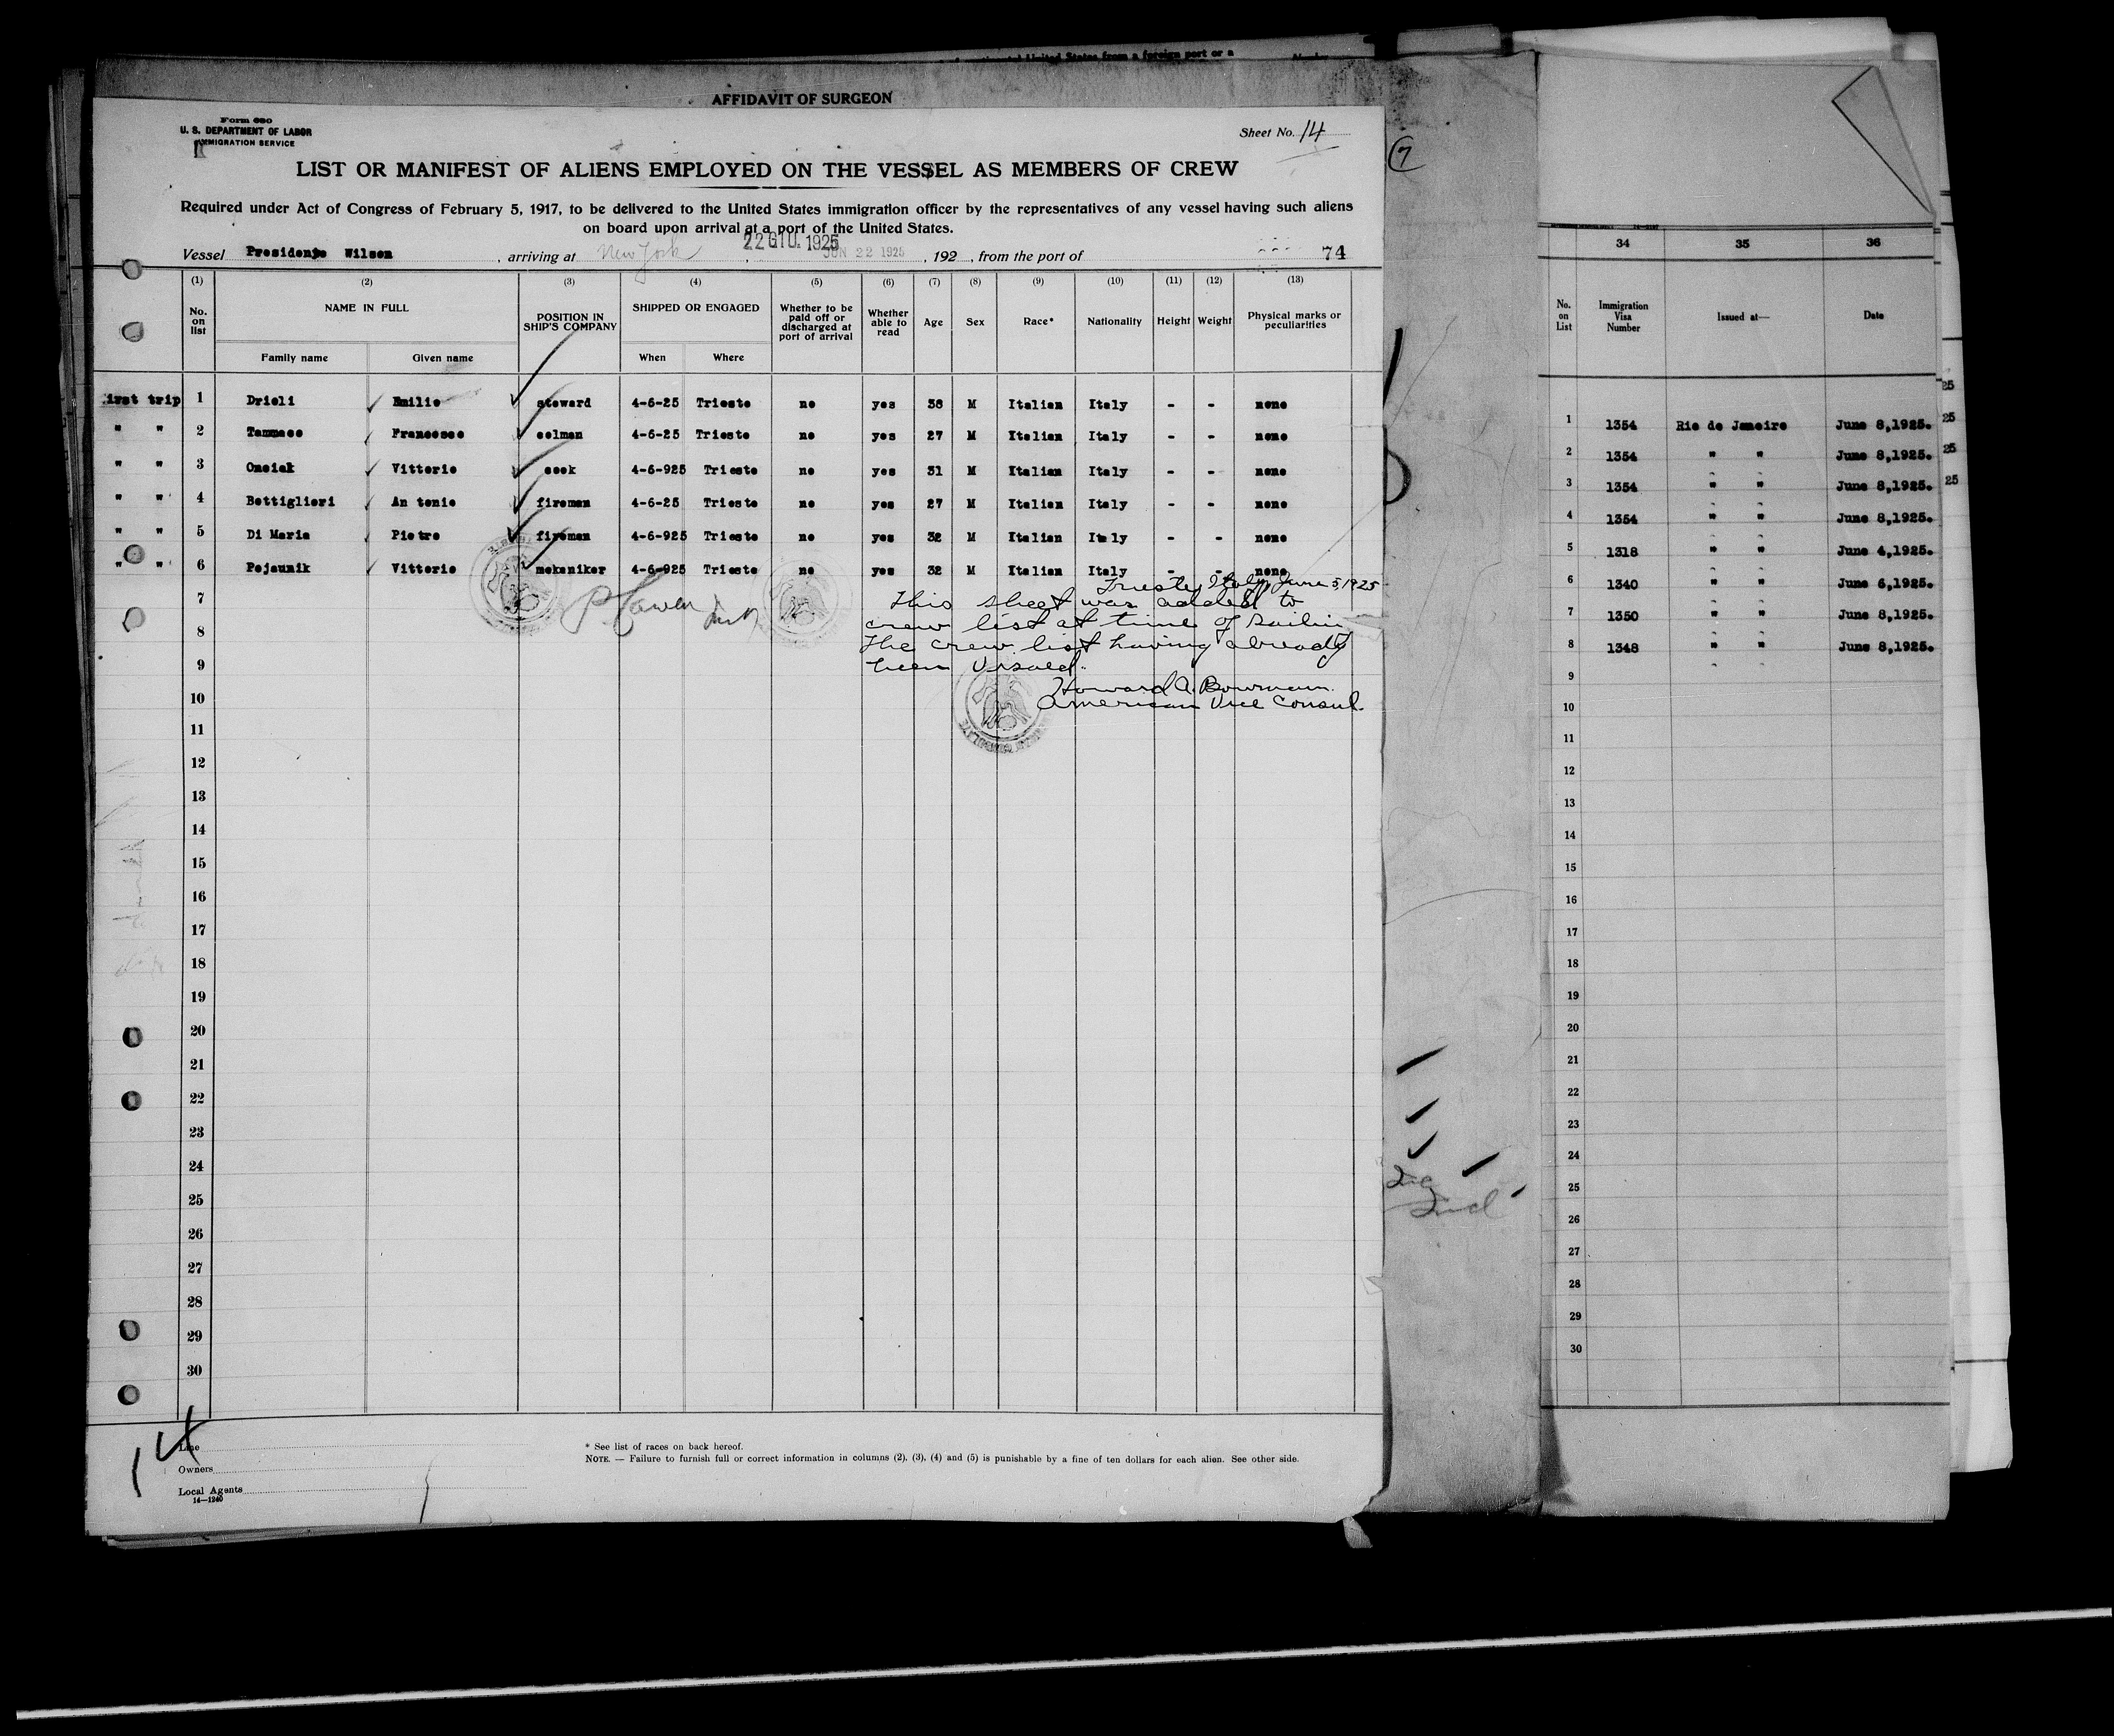 AFFIDAVIT OF SURGEON
Form 680
U. S. DEPARTMENT OF LABOR
IMMIGRATION SERVICE
Sheet No. 14
LIST OR MANIFEST OF ALIENS EMPLOYED ON THE VESSEL AS MEMBERS OF CREW
Required under Act of Congress of February 5, 1917, to be delivered to the United States immigration officer by the representatives of any vessel having such aliens
on board upon arrival at a port of the United States.
22 GIU. 1925
Vessel Presidente Wilson, arriving at New York, JUN 22 1925, 192 , from the port of 74
(1) (2) (3) (4) (5) (6) (7) (8) (9) (10) (11) (12) (13)
No. on list NAME IN FULL POSITION IN SHIP'S COMPANY SHIPPED OR ENGAGED Whether to be paid off or discharged at port of arrival Whether able to read Age Sex Race* Nationality Height Weight Physical marks or peculiarities
Family name Given name When Where
irst trip 1 Drioli Emilio steward 4-6-25 Trieste no yes 38 M Italian Italy - - none
" " 2 Tammaso Francesco oelman 4-6-25 Trieste no yes 27 M Italian Italy - - none
" " 3 Omoiak Vittorio cook 4-6-925 Trieste no yes 31 M Italian Italy - - none
" " 4 Bottiglieri An tonio fireman 4-6-25 Trieste no yes 27 M Italian Italy - - none
" " 5 Di Maria Pietro fireman 4-6-925 Trieste no yes 32 M Italian Italy - - none
" " 6 Pojaunik Vittorio mekaniker 4-6-925 Trieste no yes 32 M Italian Italy - - none
Trieste, Italy, June 5, 1925
7 This sheet was added to
8 crew list at time of sailin
the crew list having already
9 been visaed.
10 Howard A. Bowman
American Vice Consul.
11
12
13
14
15
16
17
18
19
20
21
22
23
24
25
26
27
28
29
30
14
Line
Owners
Local Agents
14—1240
* See list of races on back hereof.
NOTE. — Failure to furnish full or correct information in columns (2), (3), (4) and (5) is punishable by a fine of ten dollars for each alien. See other side.
7
34 35 36
No. on List Immigration Visa Number Issued at— Date
25
1 1354 Rio de Janeiro June 8,1925. 25
2 1354 " " June 8,1925. 25
3 1354 " " June 8,1925. 25
4 1354 " " June 8,1925.
5 1318 " " June 4,1925.
6 1340 " " June 6,1925.
7 1350 " " June 8,1925.
8 1348 " " June 8,1925.
9
10
11
12
13
14
15
16
17
18
19
20
21
22
23
24
25
26
27
28
29
30